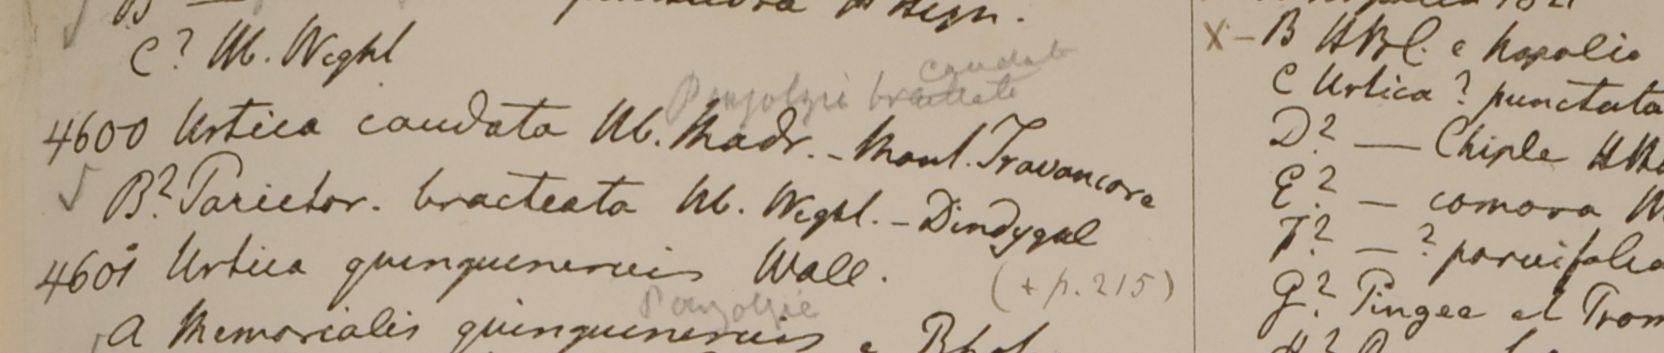 B —
C? Hb. Wight
caudata
Pouzolzia bracteata
4600 Urtica caudata Hb. Madr. - Mont. Travancore
B? Parietar. bracteata Hb. Wight. - Dindygul
4601 Urtica quinquenervis Wall.
(+ p. 215)
Pouzolzia
A Memorialis quinquenervis e
X - B HBC. e Napalia
C Urtica? punctata
D? — Chiple
E? — comora
F? — ? parvifolia
G? Pingee et Trom